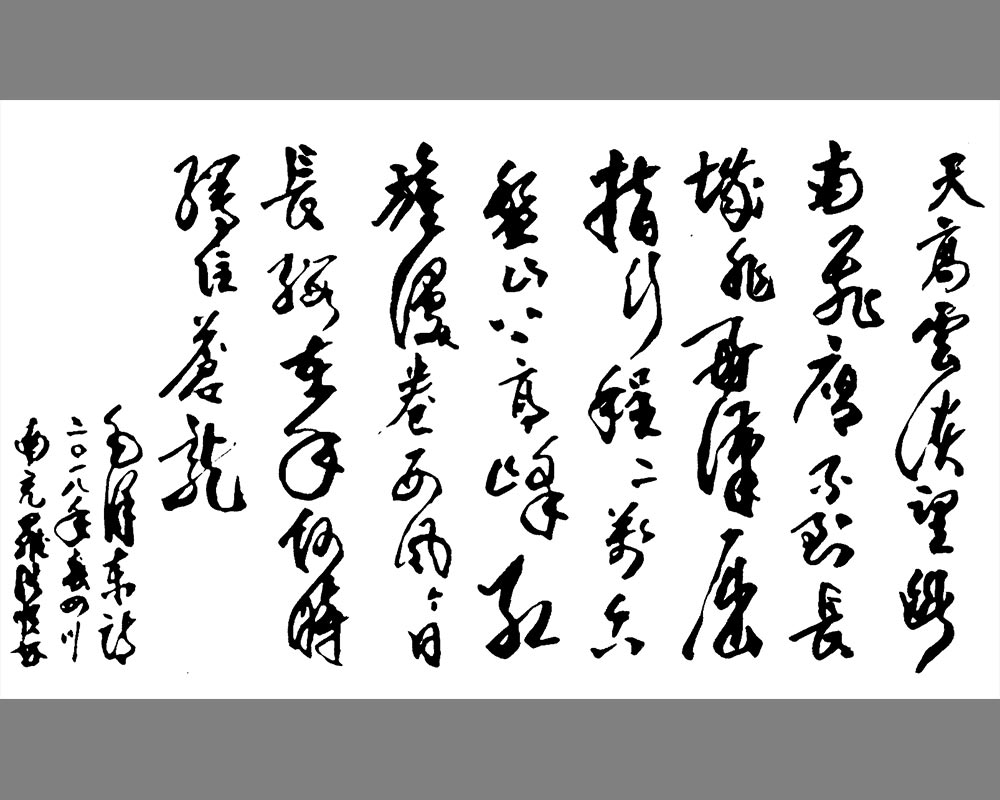 天高雲淡望斷
南飛雁不到長
城非好漢屈
指行程二萬六
盤山上高峰紅
旗漫卷西風今日
長纓在手何時
縛住蒼龍
毛澤東詩
二〇一八年春四川
南充羅